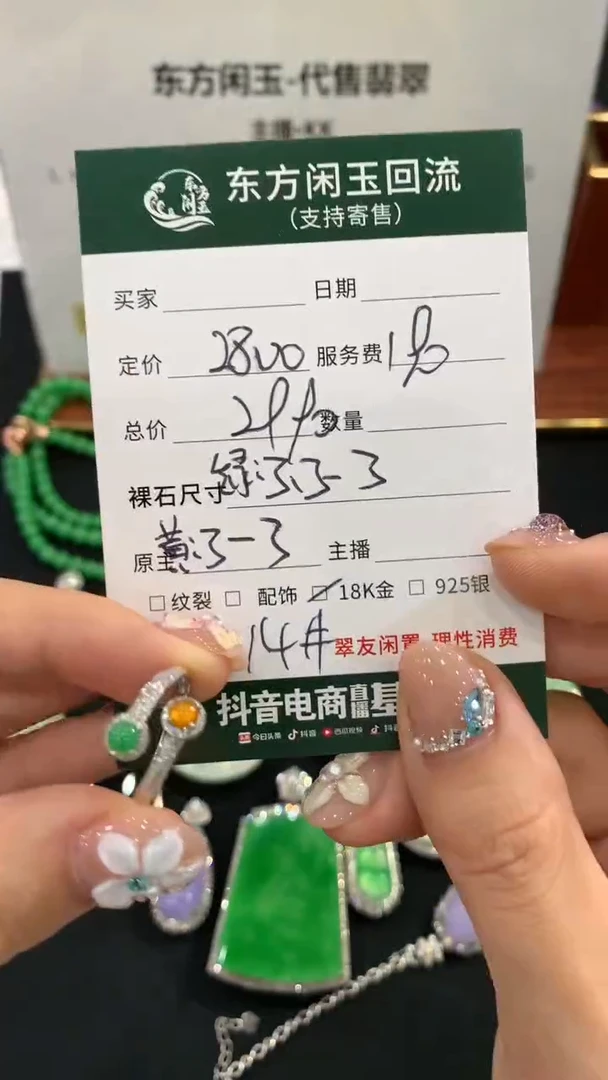 东方闲玉-代售翡翠
主播-KK
东方闲玉
东方闲玉回流
(支持寄售)
买家 日期
定价 2800 服务费 1%
总价 数量
裸石尺寸 绿:3.3-3
原主 黄:3-3 主播
□纹裂 □ 配饰 □18K金 □925银
14# 翠友闲置 理性消费
抖音电商直播基
今日头条 抖音 西瓜视频 抖